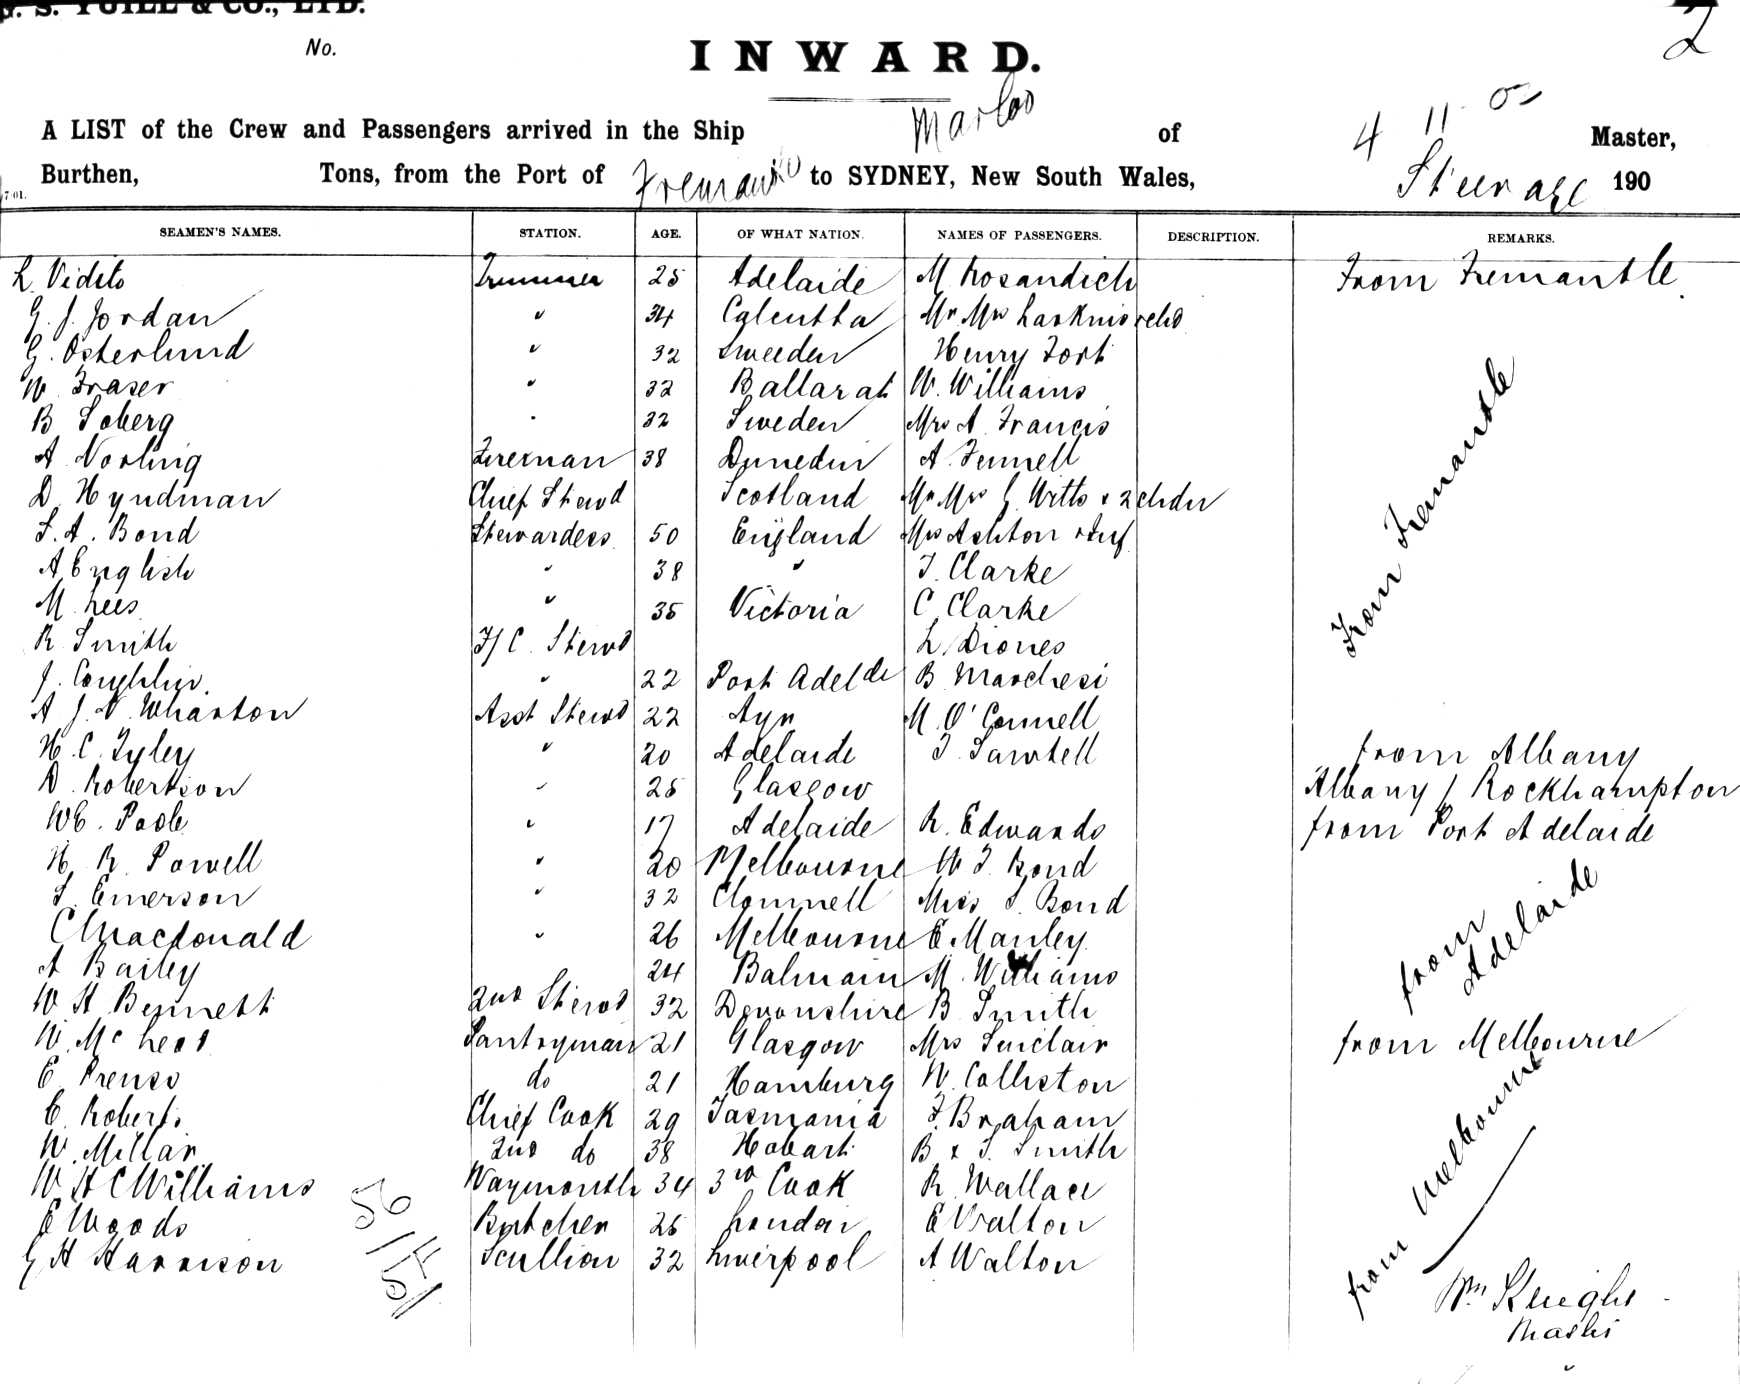 G. S. YUILL & CO., LTD.
2
No.
INWARD.
A LIST of the Crew and Passengers arrived in the Ship Marloo of 4 11 03 Master,
Burthen, Tons, from the Port of Fremantle to SYDNEY, New South Wales, Steerage 190
7·01.
SEAMEN'S NAMES. STATION. AGE. OF WHAT NATION. NAMES OF PASSENGERS. DESCRIPTION. REMARKS.
L Vidito Trimmer 25 Adelaide M Rosandich From Fremantle
G. J. Jordan " 34 Calcutta Mr Mrs
G. Osterlund " 32 Sweeden Henry Fort
W Fraser " 32 Ballarat W. Williams
B Soberg " 32 Sweden Mrs A. Francis
A Norling Fireman 38 Dunedin A. Fennell
D Hyndman Chief Stewd Scotland Mr Mrs G Witts & 2 chdn
S. A. Bond Stewardess 50 England Mrs Ashton & Inf From Fremantle
A English " 38 " T. Clarke
M Lees " 35 Victoria C Clarke
R Smith F/C. Stewd L Diones
J. Coughlin " 22 Port Adelde B Marchesi
A J. V. Wharton Asst Stewd 22 Ayr M. O'Connell
H. C. Tyley " 20 Adelaide T. Sawtell from Albany
D. Robertson " 25 Glasgow Albany / Rockhampton
W E. Poole " 17 Adelaide R. Edwards from Port Adelaide
H. R. Powell " 20 Melbourne W T. Bond
S. Emerson " 32 Clonmell Miss S. Bond
C Macdonald " 26 Melbourne E Manley from Adelaide
A Bailey 24 Balmain M. Williams
W H Bennett 2nd Stewd 32 Devonshire B Smith
W. McLeod Pantryman 21 Glasgow Mrs Sinclair from Melbourne
E Prenso do 21 Hamburg W. Calliston
C. Roberts Chief Cook 29 Tasmania F. Braham
W. Millar 2nd do 38 Hobart B & S. Smith
W H C Williams Waymouth 34 3rd Cook R. Wallace from Melbourne
E Woods Butcher 25 London E Walton
G H Harrison Scullion 32 Liverpool A Walton
56/51
Wm